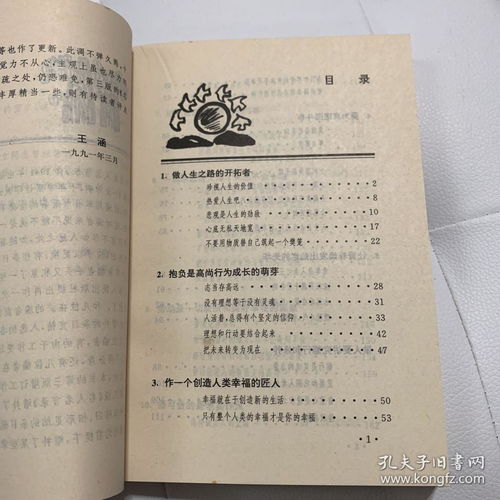 等也作了更新。此调不弹久矣，
觉力不从心，主观上虽也尽力
疏之处，仍恐难免，第三版的
丰厚精当一些，则有待读者
王涵
一九九一年三月
目 录
1. 做人生之路的开拓者
珍视人生的价值 · · · · · · 2
热爱人生吧 · · · · · · 8
悲观是人生的劲敌 · · · · · · 10
心底无私天地宽 · · · · · · 17
不要用物质替自己筑起一个樊笼 · · · · · · 22
2. 抱负是高尚行为成长的萌芽
志当存高远 · · · · · · 28
没有理想等于没有灵魂 · · · · · · 31
人活着，总得有个坚定的信仰 · · · · · · 33
理想和行动要结合起来 · · · · · · 42
把未来转变为现在 · · · · · · 47
3. 作一个创造人类幸福的匠人
幸福就在于创造新的生活 · · · · · · 50
只有整个人类的幸福才是你的幸福 · · · · · · 53
· 1 ·
孔夫子旧书网
www.kongfz.com